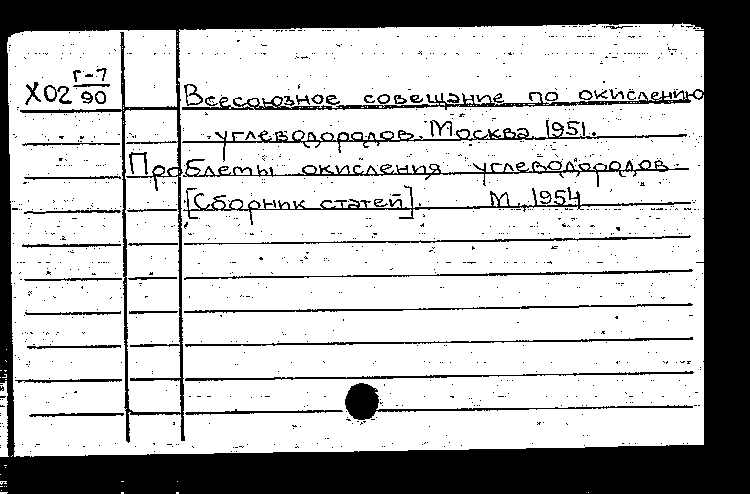 Х02 Г-7/90
Всесоюзное совещание по окислению
углеводородов. Москва 1951.
Проблемы окисления углеводородов.
[Сборник статей]. М., 1954